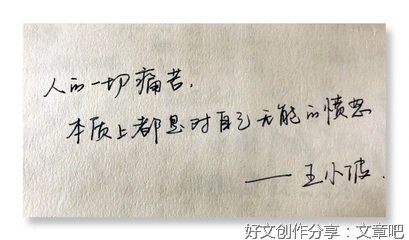 人的一切痛苦,
本质上都是对自己无能的愤怒
——王小波.
好文创作分享：文章吧